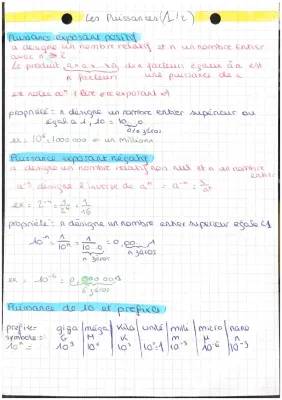 Les Puissances (1/2)
Puissance exposant positif
a désigne un nombre relatif et n un nombre entier
avec n ≥ 2
Le produit a × a × ... × a des facteurs égaux à a est
n facteurs une puissance de a
notée aⁿ exposant
propriété : n désigne un nombre entier supérieur ou
égale à 1, 10 = 10...0
n zéros
ex = 10⁶ = 1000 000 = un millions
Puissance exposant négatif
a désigne un nombre relatif non nul et n un nombre
entier
a⁻ⁿ désigne l'inverse de aⁿ = a⁻ⁿ = 1/aⁿ
ex = 2⁻⁴ = 1/2⁴ = 1/16
propriété : n désigne un nombre entier supérieur égale à 1
10⁻ⁿ = 1/10ⁿ = 1/10...0 = 0,00...1
n zéros n zéros
ex = 10⁻⁶ = 0,000 001
6 zéros
Puissance de 10 et préfixes
préfixe= giga méga kilo unité milli micro nano
symbole= G M K m µ n
10ⁿ = 10⁹ 10⁶ 10³ 10⁰=1 10⁻³ 10⁻⁶ 10⁻⁹